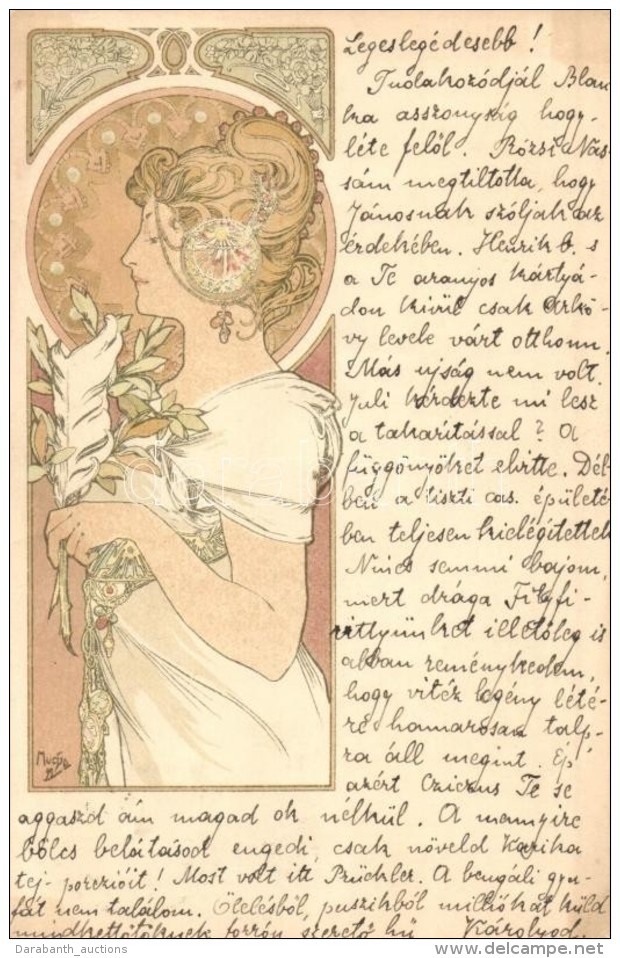 Legeslegédesebb !
Tudakozódjál Blan
ka asszonyság hogy-
léte felől. Rózsi a Vas
sám megtiltotta, hogy
Jánosnak szóljak az
érdekében. Henrik b. s
a Te aranyos kártyá-
don kivül csak Arkö-
vy levele várt otthonn.
Más ujság nem volt.
Juli kérdezte mi lesz
a takaritással ? A
függönyöket elvitte. Dél-
ben a tiszti cas. épületé-
ben teljesen kielégitettek
Nincs semmi bajom,
mert drága Fityfi-
rittyünket illetőleg is
abban reménykedem,
hogy vitéz legény lété-
re hamarosan talp-
ra áll megint. Ép
azért Cziczus Te se
aggaszd ám magad ok nélkül. A mennyire
bölcs belátásod engedi, csak növeld Karika
tej-porczióit ! Most volt itt Prückler. A bengáli gyu-
fát nem találom. Ölelésből, puszikból milliókat küld
mindkettőtöknek forrón szerető hü Károlyod.
Mucha
darabanth
Darabanth_auctions
delcampe.net